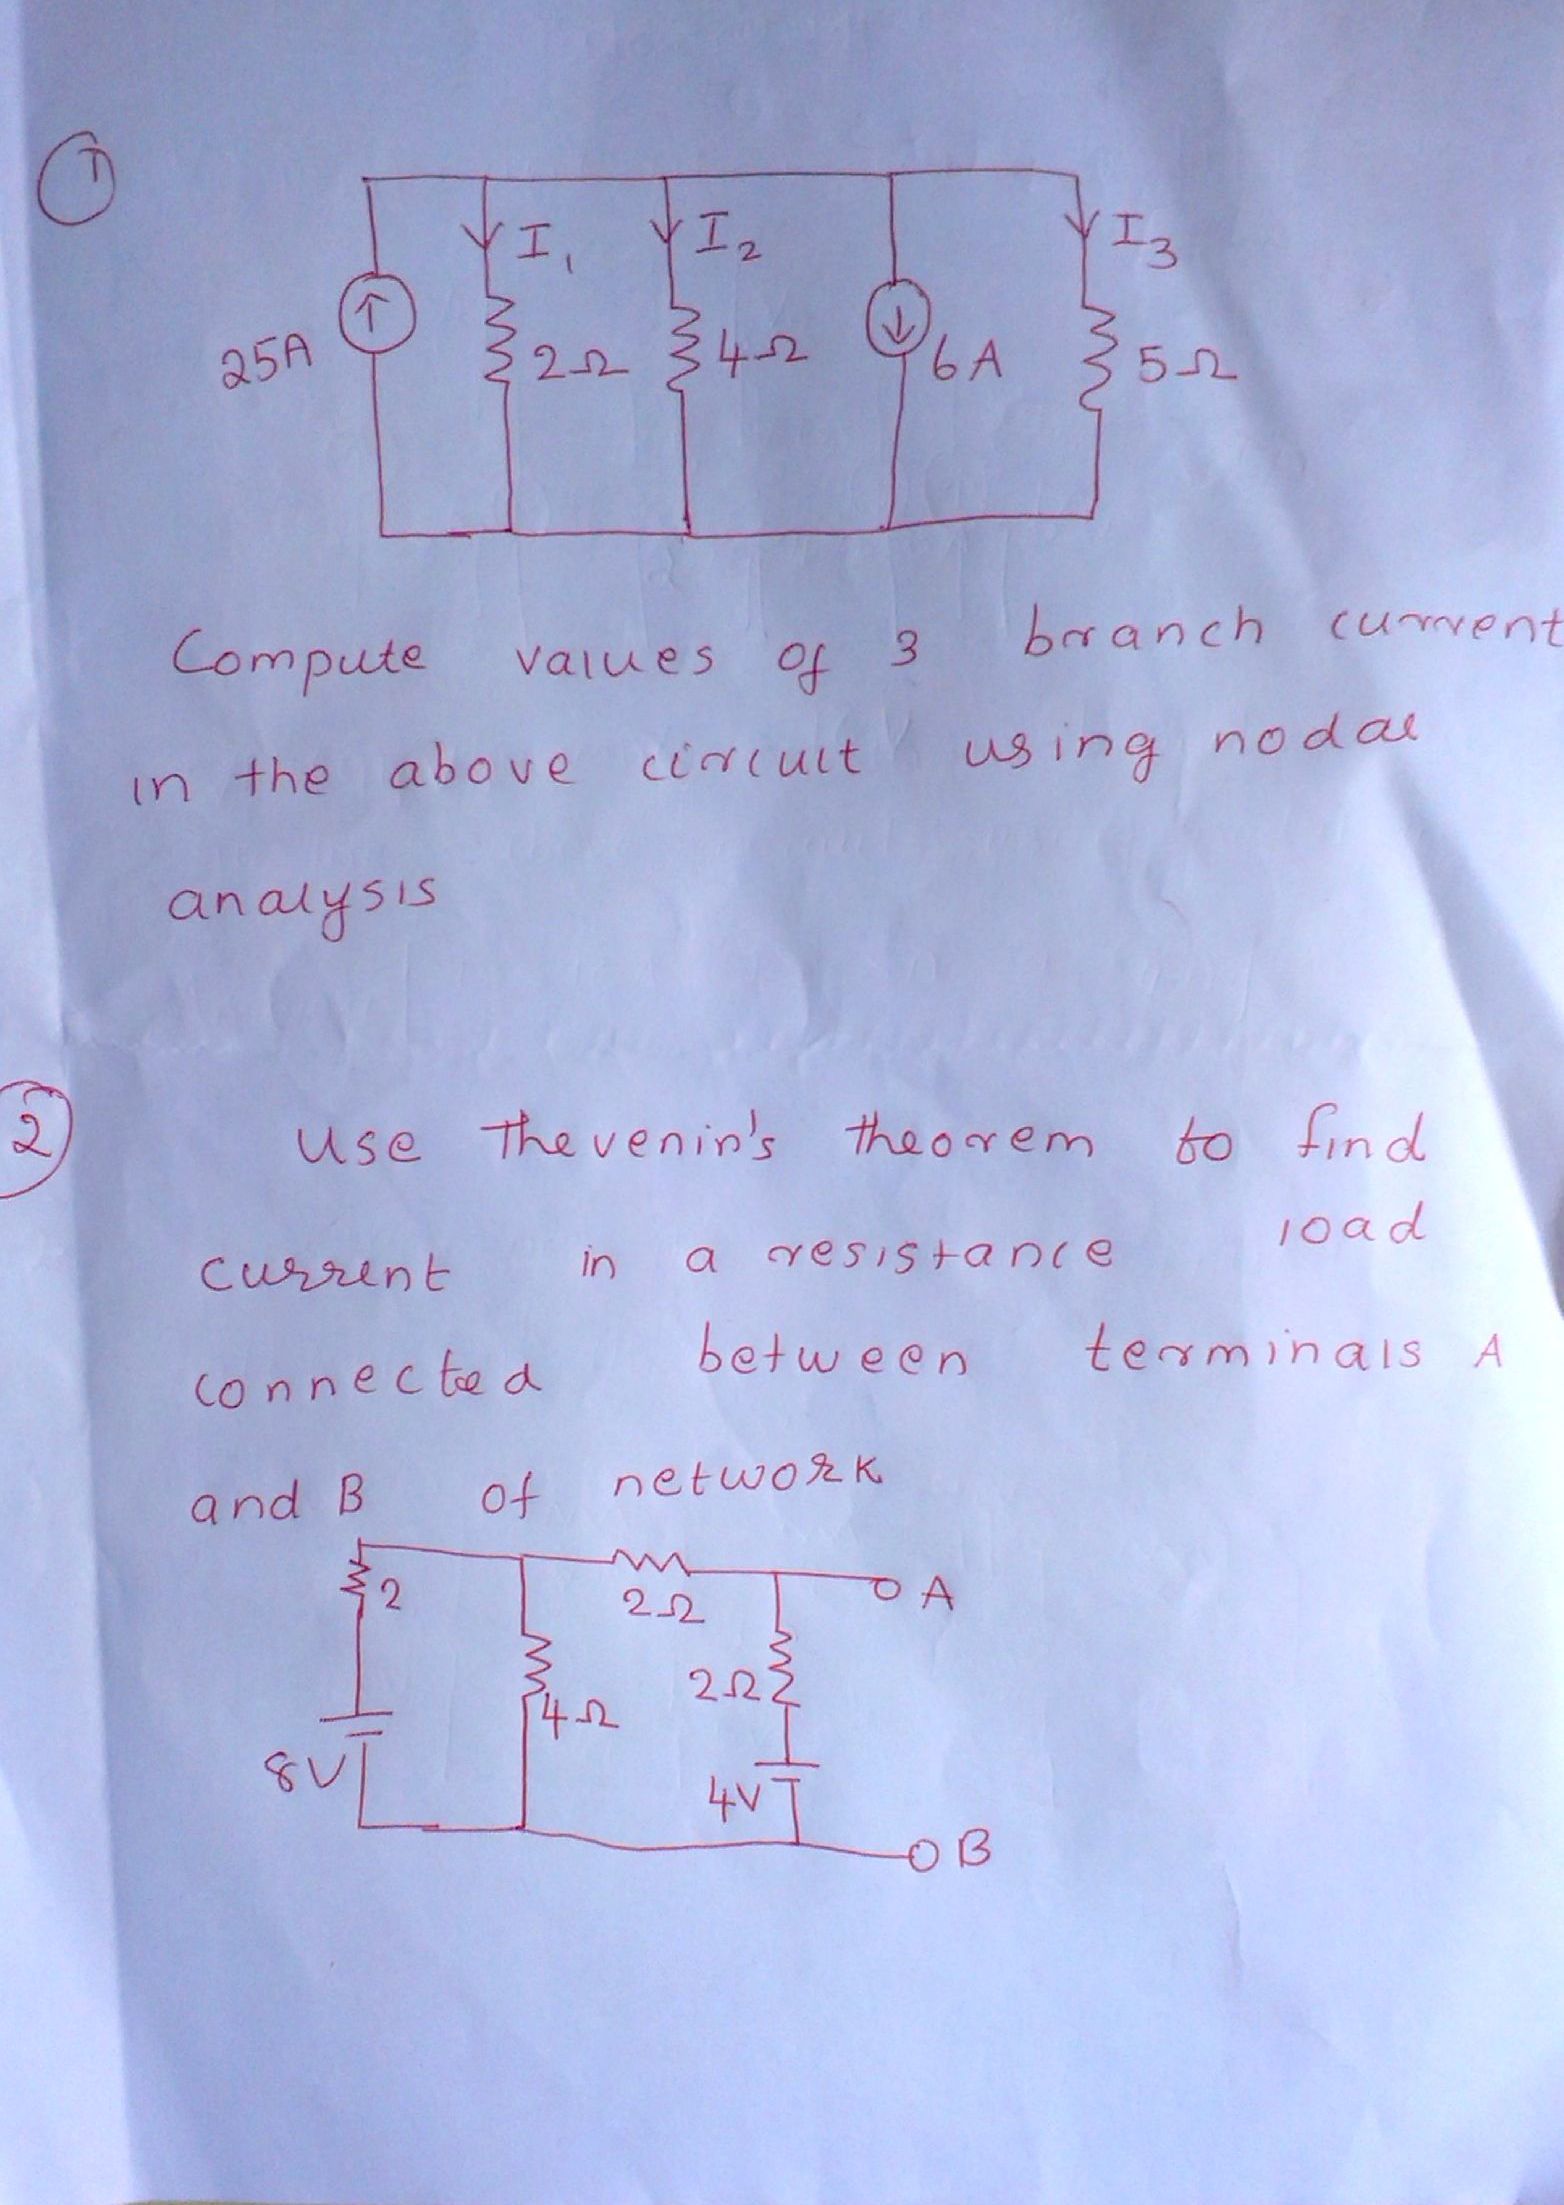 1
I1 I2 I3
25A 2Ω 4Ω 6A 5Ω
Compute values of 3 branch current
in the above circuit using nodal
analysis
2
Use Thevenin's theorem to find
current in a resistance load
connected between terminals A
and B of network
2 2Ω A
4Ω 2Ω
8V 4V
B